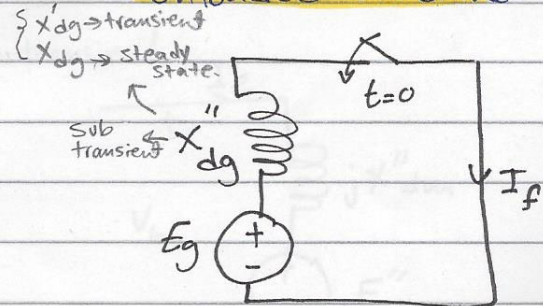 X'dg → transient
Xdg → steady state.
t=0
Sub transient ← X"dg
If
Eg
+
-